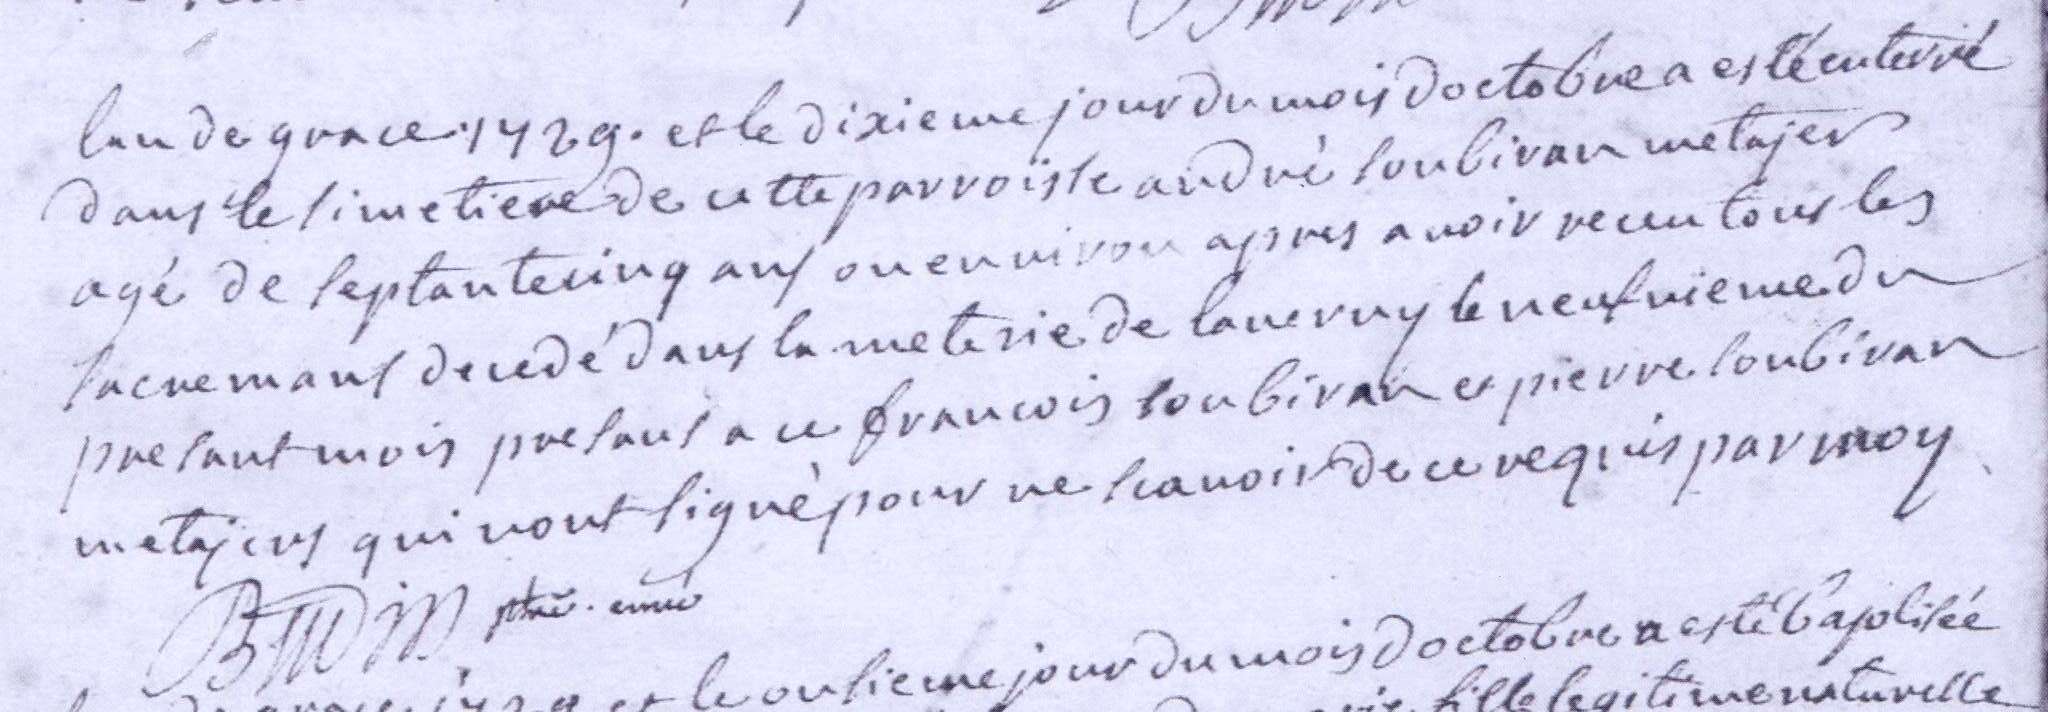 lan de grace 1729. et le dixieme jour du mois doctobre a esté enterré
dans le simetiere de cette parroisse andré soubiran metajer
agé de septantecinq ans ou enuiron apres auoir receu tous les
sacremans decedé dans la meterie de lauerny le neufuieme du
presant mois presans a ce francois soubiran et pierre soubiran
metajers qui nont signé pour ne scauoir de ce requis par moy
ptre. curé
de grace 1729 et le onsieme jour du mois doctobre a esté baptisée
fille legitime naturelle